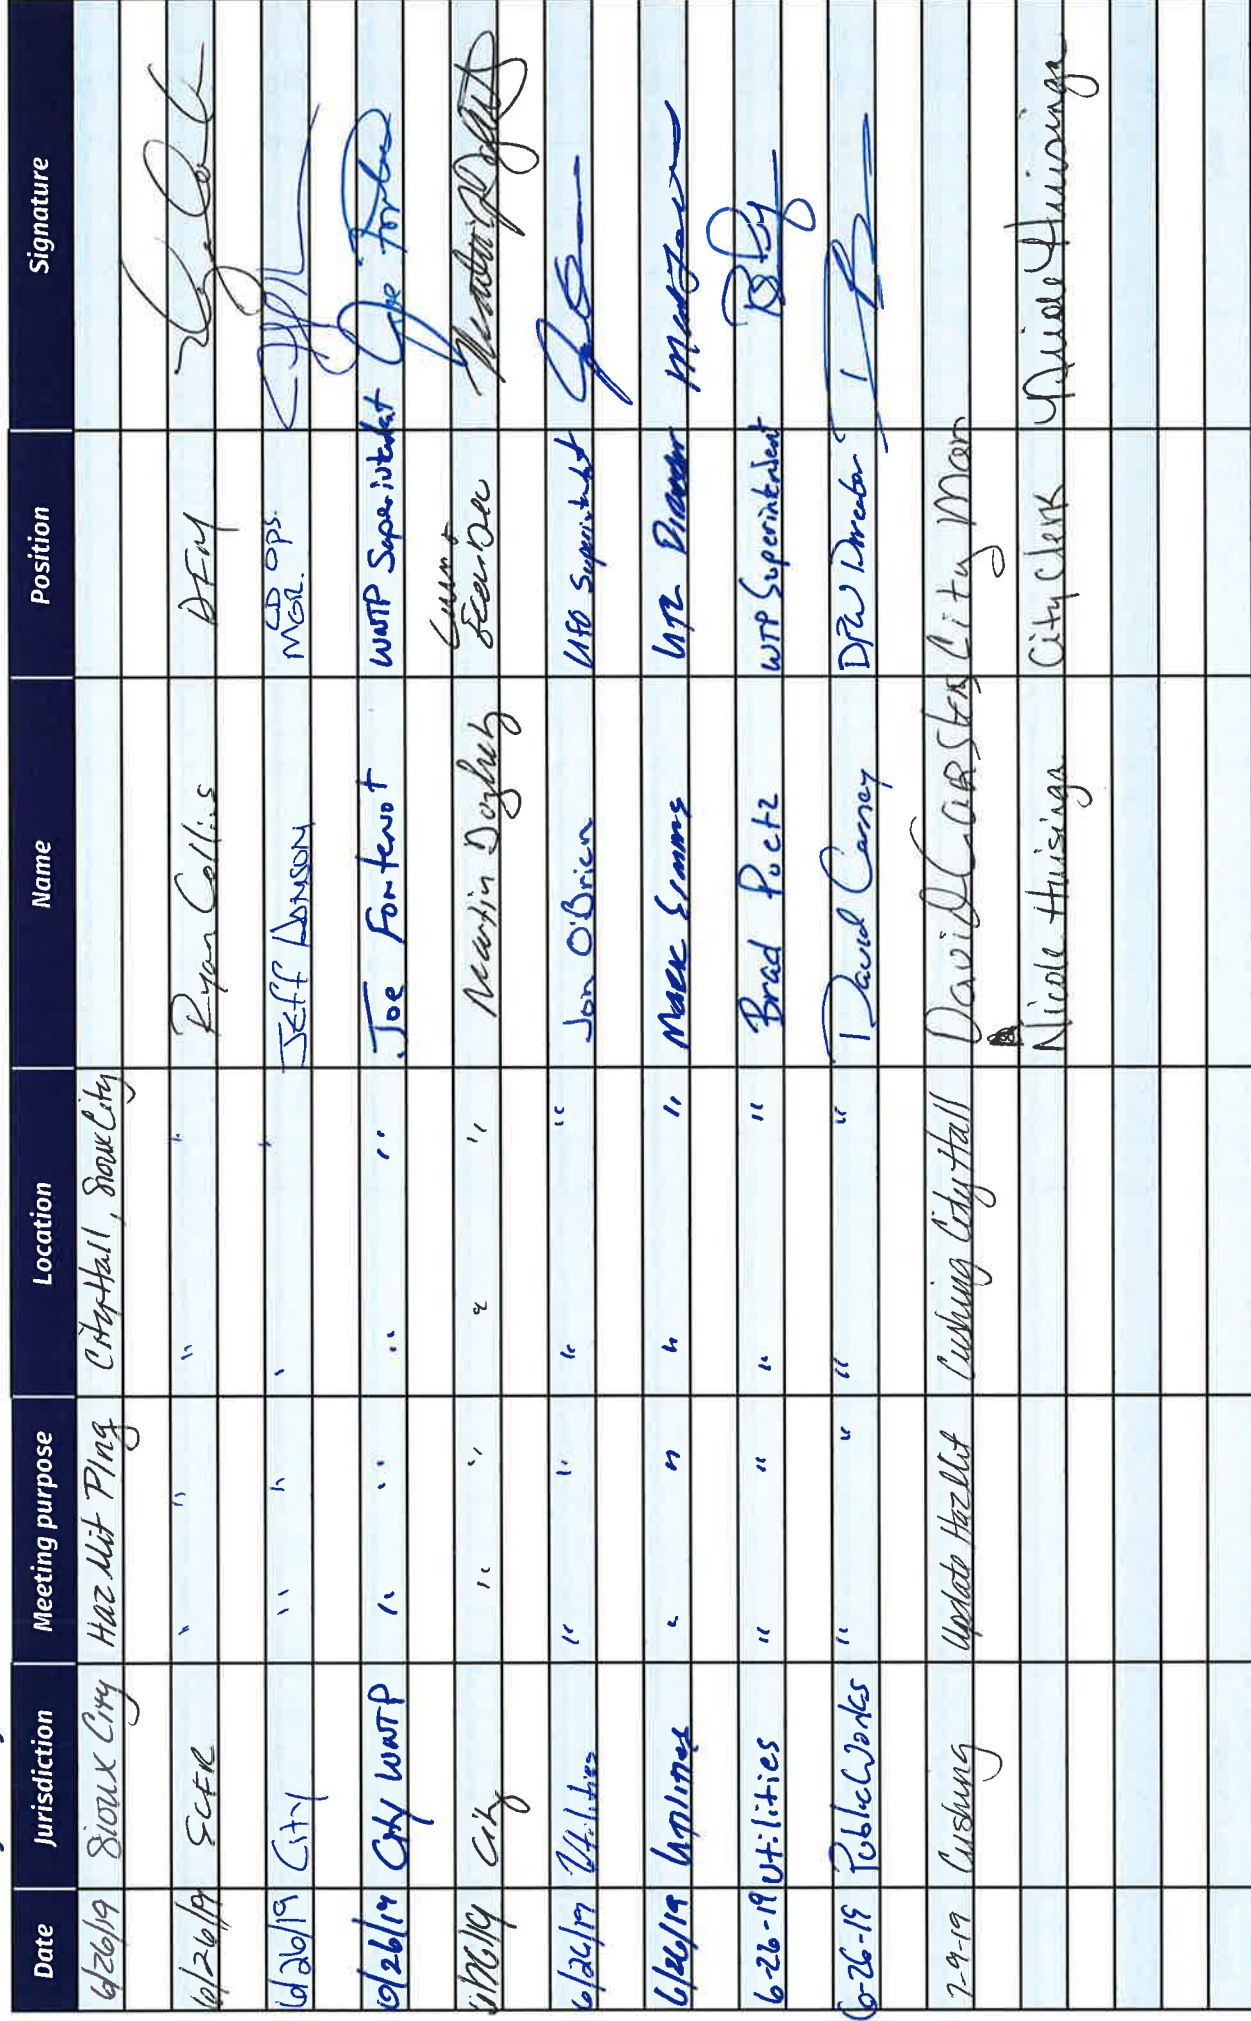 Date Jurisdiction Meeting purpose Location Name Position Signature
6/26/19 Sioux City Haz Mit Plng City Hall, Sioux City
6/26/19 SCFR " " " " Ryan Collins AFM
6/26/19 City " " " " JEFF HANSON CD Ops. MGR.
6/26/19 City WWTP " " " " Joe Fontenot WWTP Superintendat Joe Fonten
6/26/19 City " " " " Martin Dogherty
6/26/19 Utilities " " " " Jon O'Brien UFO Superintendent
6/26/19 Utilities " " " " Mark Simms Utl Director
6-26-19 Utilities " " " " Brad Puetz WTP Superintendent
6-26-19 Public Works " " " " David Carney DPW Director
7-9-19 Cushing Update Haz Mit Cushing City Hall David Carsten City Man
Nicole Huisinga City Clerk Nicole Huisinga